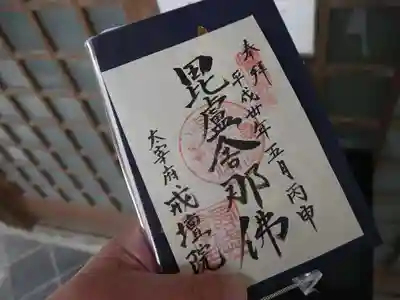 奉拝
平成廿年五月丙申
毘盧舎那佛
太宰府
戒壇院